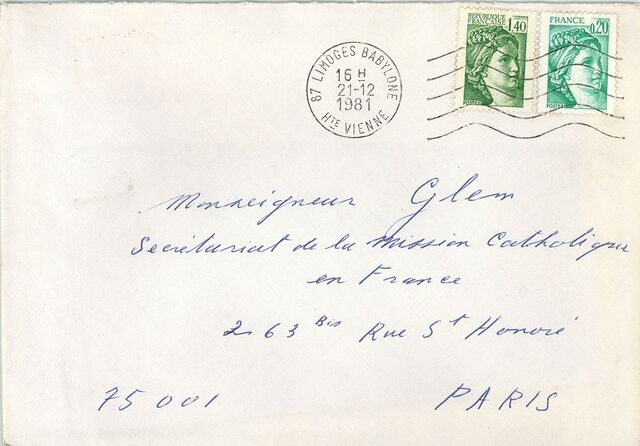 RÉPUBLIQUE FRANÇAISE 1,40
POSTES
FRANCE 0,20
POSTES
87 LIMOGES BABYLONE
16 H
21-12
1981
HTE VIENNE
Monseigneur Glem
Secrétariat de la Mission Catholique
en France
263 Bis Rue St Honoré
75001 PARIS